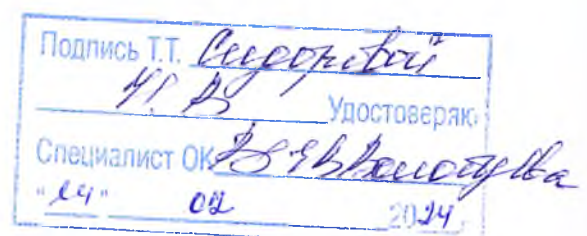 Подпись Т.Т. Сидоровой
Н. В Удостоверяю
Специалист ОК
"14" 02 2024